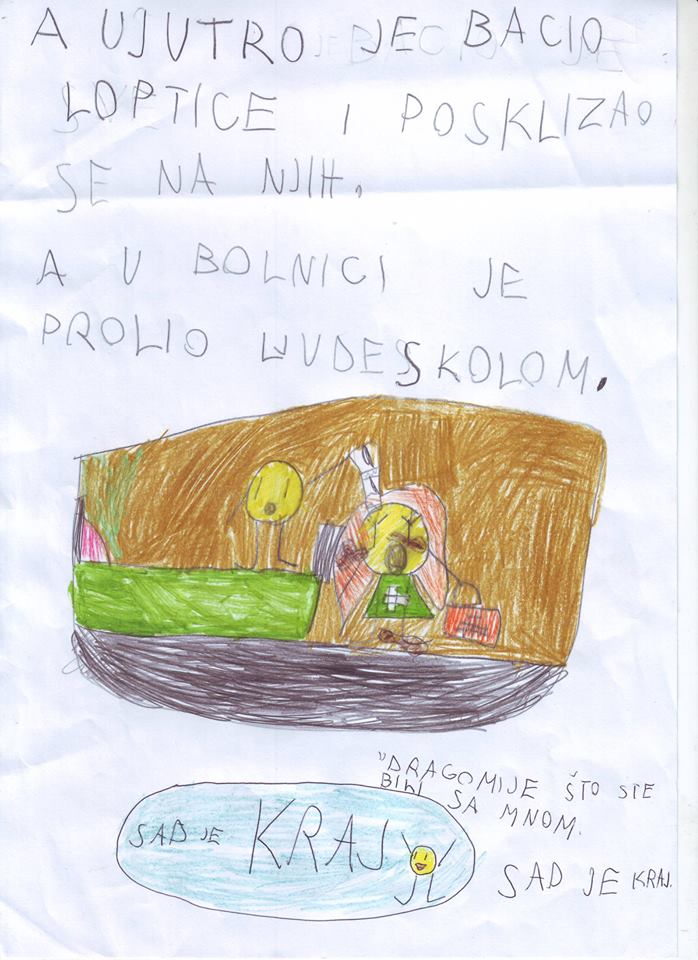 A UJUTRO JE BACIO
LOPTICE I POSKLIZAO
SE NA NJIH.
A U BOLNICI JE
PROLIO LJUDESKOLOM.
"DRAGOMIJE ŠTO STE
BILI SA MNOM.
SAD JE KRAJ
SAD JE KRAJ.